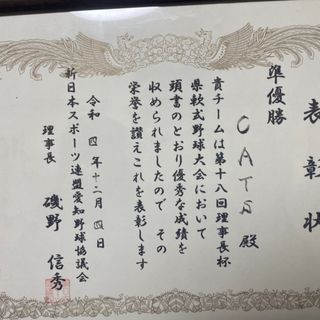 表彰状
準優勝
CATS 殿
貴チームは第十八回理事長杯
県軟式野球大会において
頭書のとおり優秀な成績を
収められましたので その
栄誉を讃えこれを表彰します
令和 四年 十二月 四日
新日本スポーツ連盟愛知野球協議会
理事長 磯野 信秀